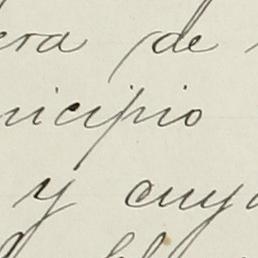 era de
nicipio
y cuya